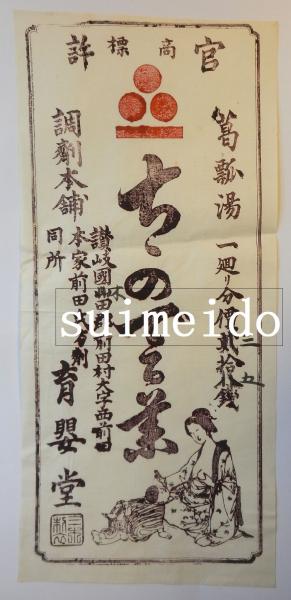 官許
商標
葛瓢湯 一廻リ分価貳拾銭
三五
ちの薬
讃岐國木田郡前田村大字西前田
調劑本舗 本家前田
同所 育嬰堂
suimeido